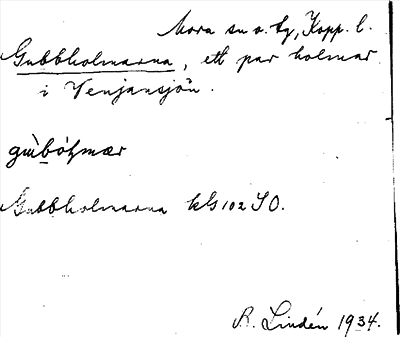 Mora sn o. tg, Kopp. l.
Gubbholmarna, ett par holmar
i Venjansjön.
Gubbholmarna kG 102 SO.
R. Lindén 1934.